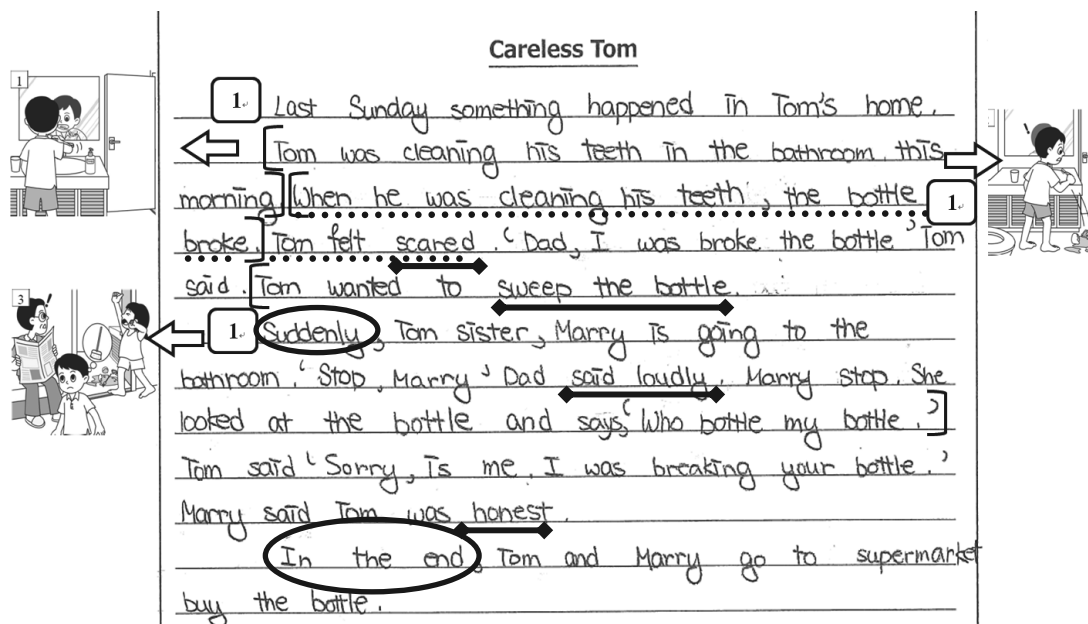 Careless Tom
1
1 Last Sunday something happened in Tom's home.
Tom was cleaning his teeth in the bathroom this
morning. When he was cleaning his teeth, the bottle 1
broke. Tom felt scared. 'Dad, I was broke the bottle' Tom
said. Tom wanted to sweep the bottle.
3
1 Suddenly, Tom sister, Marry is going to the
bathroom. 'Stop, Marry' Dad said loudly. Marry stop. She
looked at the bottle and says, 'Who bottle my bottle.'
Tom said 'Sorry, is me. I was breaking your bottle.'
Marry said Tom was honest.
In the end, Tom and Marry go to supermarket
buy the bottle.